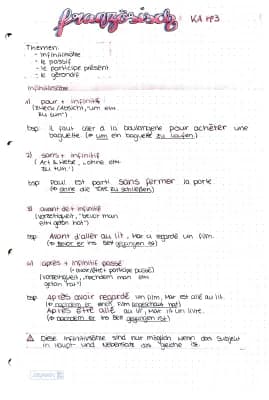 französisch KA №3
Themen:
- Infinitivsätze
- le passif
- le participe présent
- le gérondif
Infinitivsätze
1) pour + infinitif
(Zweck/Absicht, "um etw.
zu tun")
bsp. Il faut aller à la boulangerie pour acheter une
baguette. (um eine baguette zu kaufen)
2) sans + infinitif
(Art & Weise, "ohne etw.
zu tun")
bsp. Paul est parti sans fermer la porte
(ohne die Türe zu schließen)
3) avant de + infinitif
(Vorzeitigkeit, "bevor man
etw. getan hat")
bsp. Avant d'aller au lit, Max a regardé un film.
(bevor er ins Bett gegangen ist)
4) après + infinitif passé
(avoir/être + participe passé)
(Vorzeitigkeit, "nachdem man etw.
getan hat")
bsp. Après avoir regardé un film, Max est allé au lit.
(nachdem er einen Film angeschaut hat)
Après être allé au lit, Max lit un livre.
(nachdem er ins Bett gegangen ist)
Diese Infinitivsätze sind nur möglich wenn das Subjekt
in Haupt- und Nebensatz das gleiche ist.